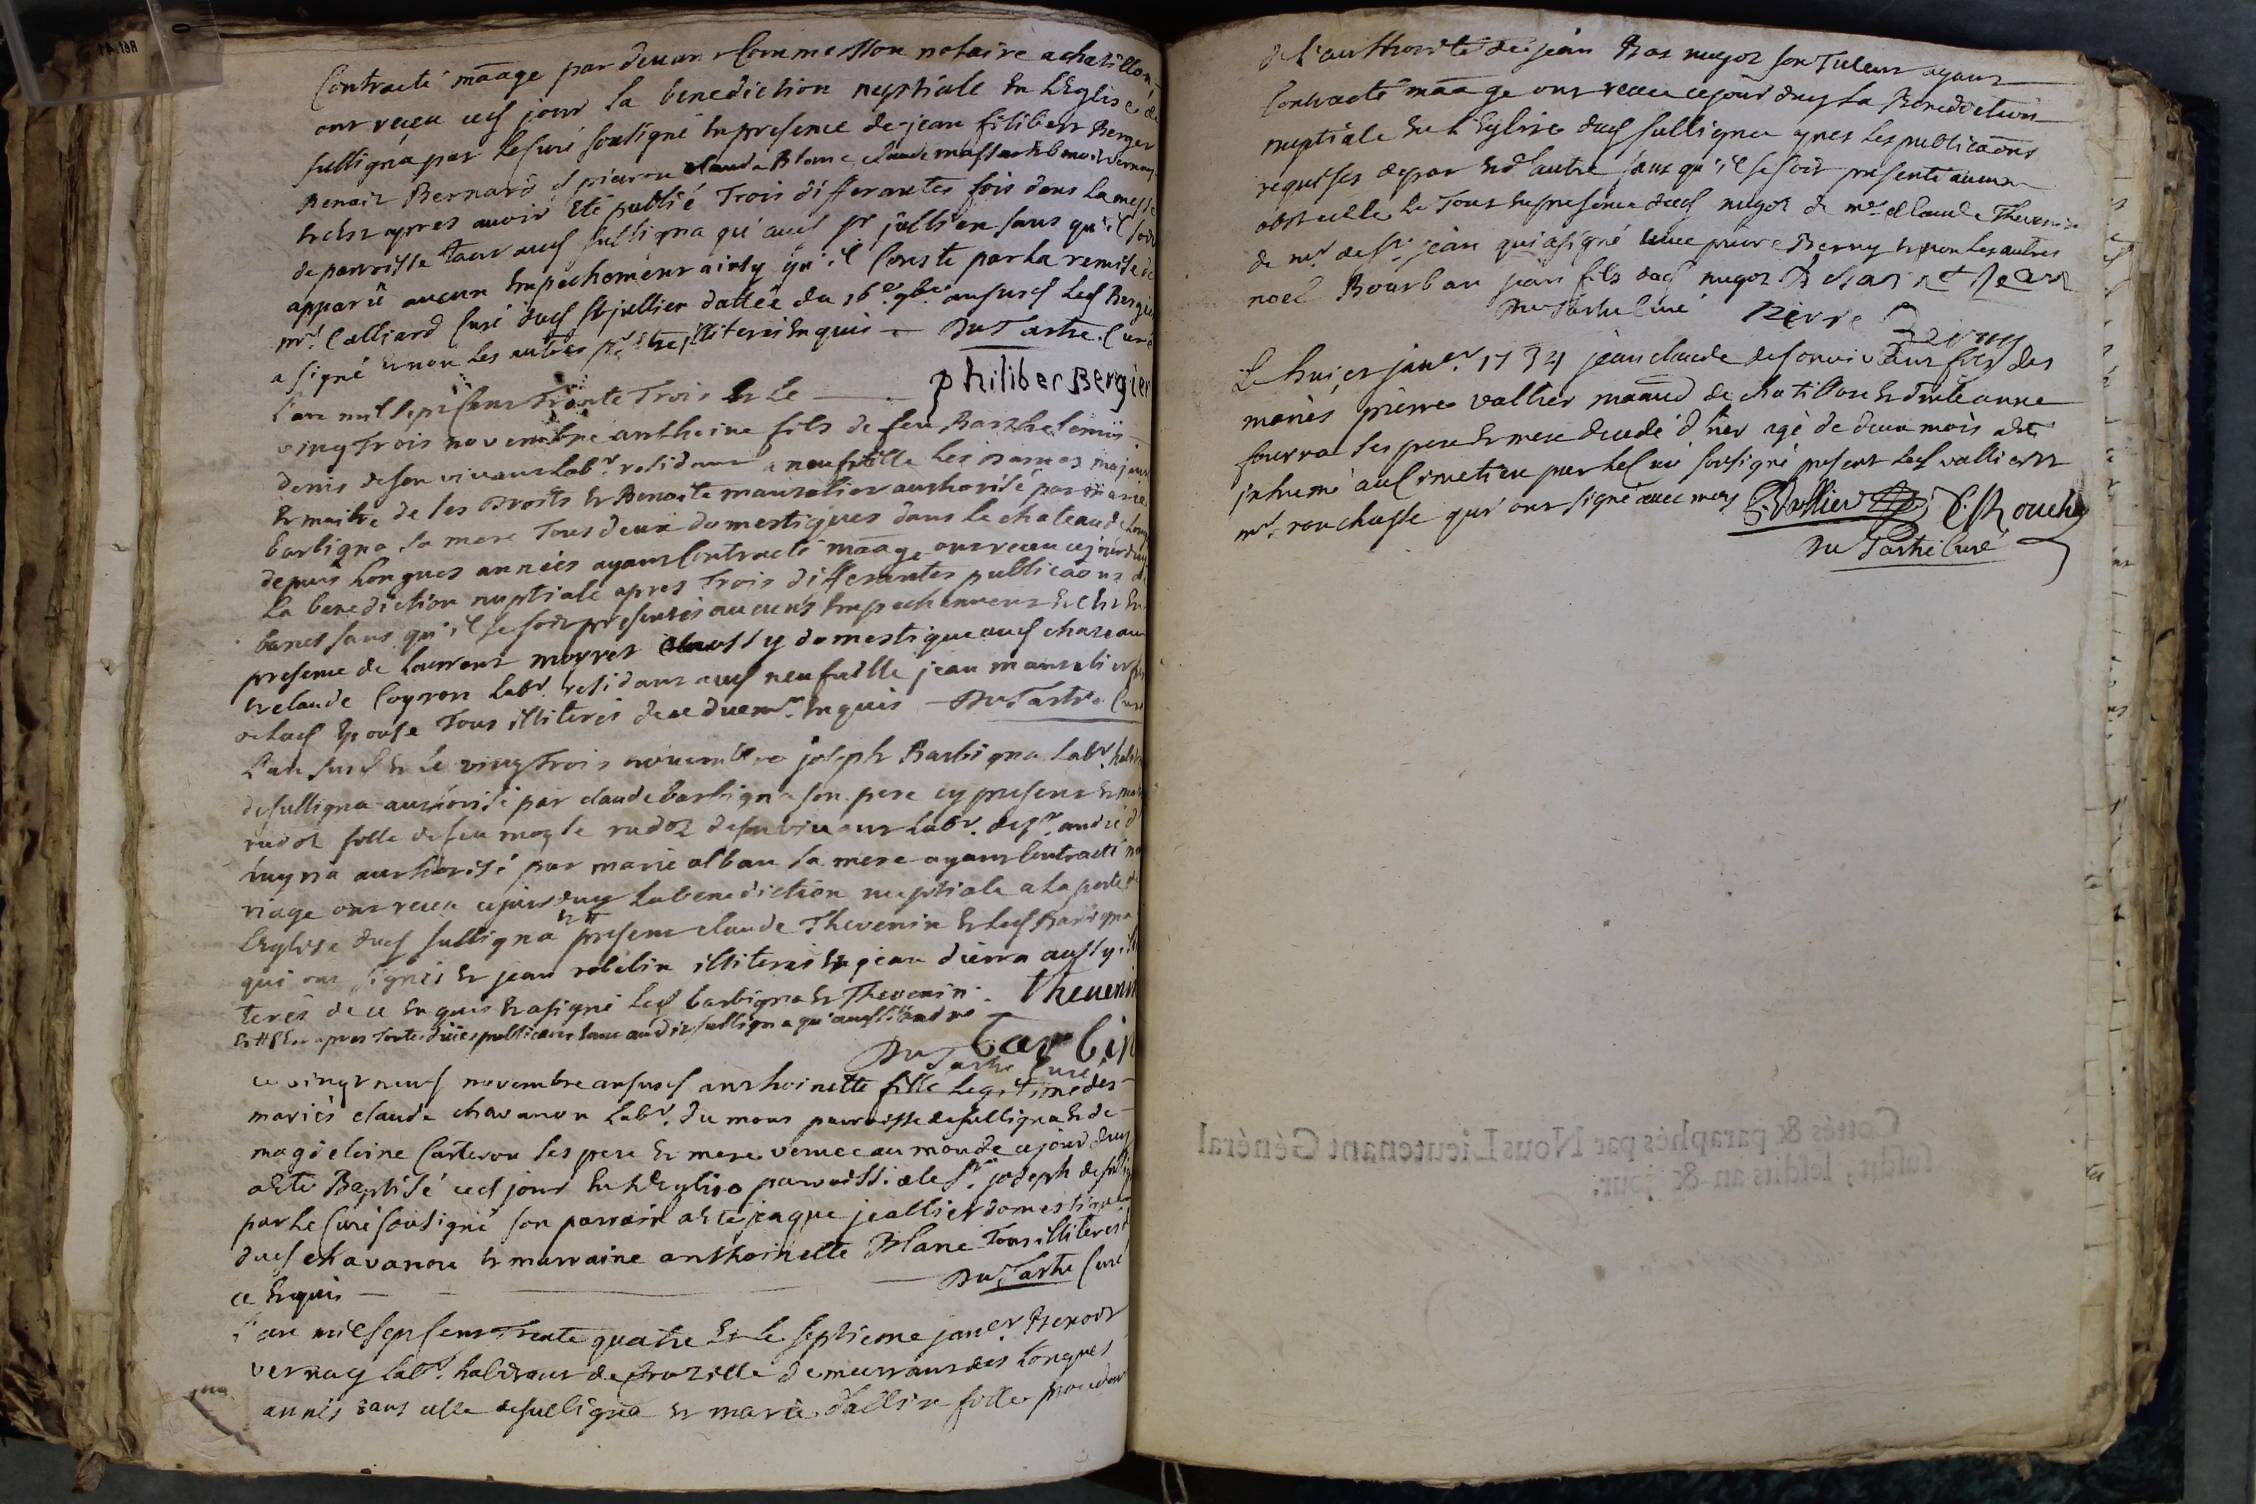 Contracté māāge par devant Commerson notaire a chatillon
ont receu ced jour la benediction nuptiale en L'Eglise de
sulligna par le curé soussigné en presence de jean filibert Berger
Benoit Bernard et pierre claude Blanc claude massard benoit vernay
et ce apres avoir eté publié Trois differantes fois dans la messe
de parroisse tant aud sulligna qu'aud st jullien sans qu'il soit
apparû aucun Empechement ainsy qu'il Conste par la remise de
mr. Calliard curé dud st jullien dattée du 16e. 9bre. an susd led Bergier
a signé et non les autres pr. être illiterés Enquis — DuTartre Curé
philiber Bergier
L'an mil sept cent Trente Trois et le —
vingt Trois novembre anthoine fils de feu Barthelemis
denis de son vivant labr. residant a neufville les Dames majeur
et maitre de ses Droits et Benoite mauzalier authorisé par marie
barbigna sa mere Tous deux domestiques dans le chateau de Long
depuis longues années ayant Contracté māāge ont receu ce jourd'huy
La benediction nuptiale apres Trois differantes publicaōns de
bancs sans qu'il se soit presentés aucuns Empechement et ce en
presence de Laurent moyret aussy domestique aud chateau
et claude Coyron labr. residant aud neufville jean mauzalier
de lad Epouse Tous illiterés de ce duemt. Enquis — DuTartre Curé
L'an susd et le vingt Trois novembre joseph Barbigna labr. habit
de sulligna authorisé par claude barbigna son pere cy present et
rudot fille de feu moyse rudot de son vivant labr. de st. andré d'
huyria authorisé par marie alban sa mere ayant Contracté ma
riage ont receu ce jourd'huy la benediction nuptiale a la porte de
L'Eglise dud sulligna present claude Thevenin et led Barbigna
qui ont signés et jean robelin illiterés et jean dierra aussy illi
terés de ce Enquis et a signé led barbigna et Thevenin. Thevenin
apres Toutes publicaōns tant audit sulligna qu'aud st. andré
DuTartre Curé barbin
ce vingt neuf novembre an susd anthoinette fille legitime des
mariés claude chavanon labr. du mons parroisse de sulligna et de
magdeleine Carteron ses pere et mere venue au monde ce jourd'huy
a eté Baptisé ced jour en L'Eglise parroissiale st. joseph de sullig
par le curé soussigné son parrain a eté jaque jeallier domestique
dud chavanon et marraine anthoinette Blanc Tous illiterés de
ce Enquis — DuTartre Curé
L'an mil sept cent Trente quatre et le septieme janer. Benoit
vernay labr. habitant de Cruzille demeurant des longues
annés dans celle de sulligna et marie dallin fille procedant
de l'authorité de jean Bas nugoz son Tuteur ayant
Contracté māāge ont receu ce jourd'huy La Benediction
nuptiale en L'Eglise dud sulligna apres les publicaōns
requises de part et d'autre sans qu'il se soit presenté aucun
obstacle le Tout en presence dud nugoz de mr. claude Thevenin
de mr. de st. jean qui a signé avec pierre Berny et non les autres
noel Bourban jean fils dud nugoz
DuTartre Curé Pierre Berny
Le huit janer. 1734 jean claude de son vivant fils des
mariés pierre vallier māānd de chatillon et d'mlle anne
fourra ses pere et mere decedé d'hier agé de deux mois a eté
inhumé au Cimetiere par le Curé soussigné present led vallier et
mr. ronchasse qui ont signé avec moy P. Vallier
DuTartre Curé
Cottés & paraphés par Nous Lieutenant Général
susdit, lesdits an & jour.